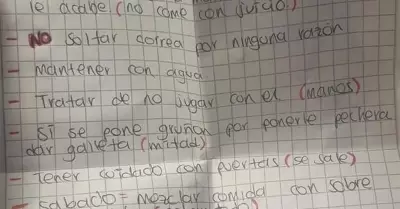 le acabe (no come con juicio.)
- NO soltar correa por ninguna razón
- Mantener con agua.
- Tratar de no jugar con el (manos)
- Si se pone gruñon por ponerle pechera
dar galleta (mitad).
- Tener cuidado con puertas (se sale)
- Sabado = mezclar comida con sobre